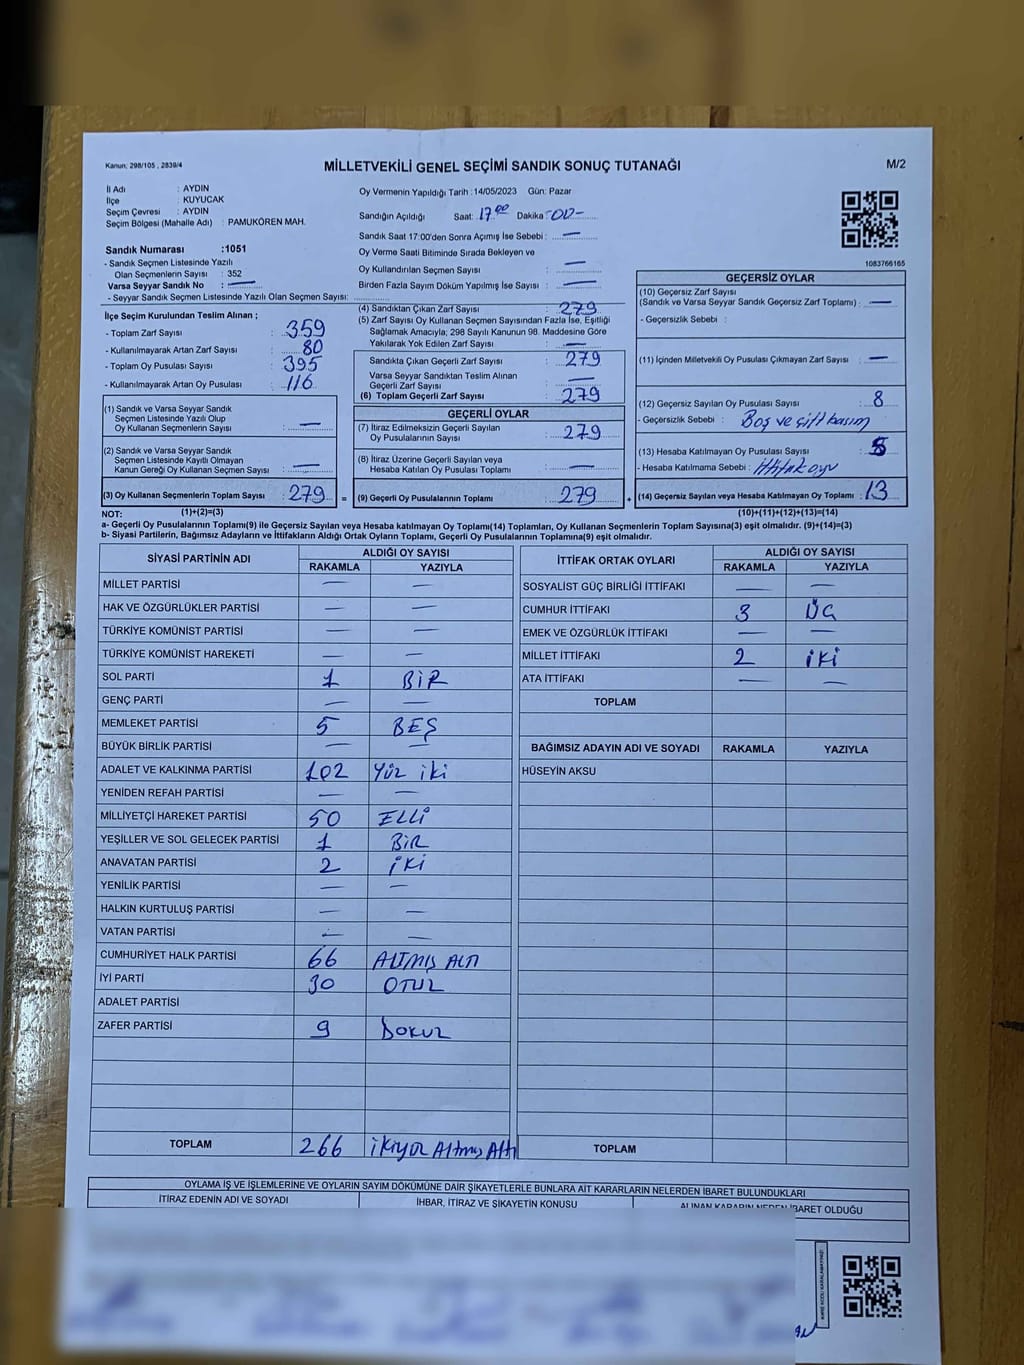 Kanun; 298/105 , 2839/4
MİLLETVEKİLİ GENEL SEÇİMİ SANDIK SONUÇ TUTANAĞI
M/2
İl Adı : AYDIN
İlçe : KUYUCAK
Seçim Çevresi : AYDIN
Seçim Bölgesi (Mahalle Adı) : PAMUKÖREN MAH.
Sandık Numarası :1051
- Sandık Seçmen Listesinde Yazılı
Olan Seçmenlerin Sayısı : 352
Varsa Seyyar Sandık No : —
- Seyyar Sandık Seçmen Listesinde Yazılı Olan Seçmen Sayısı:
Oy Vermenin Yapıldığı Tarih :14/05/2023 Gün: Pazar
Sandığın Açıldığı Saat: 17.00 Dakika -00-
Sandık Saat 17:00'den Sonra Açımış İse Sebebi : —
Oy Verme Saati Bitiminde Sırada Bekleyen ve
Oy Kullandırılan Seçmen Sayısı : —
Birden Fazla Sayım Döküm Yapılmış İse Sayısı : —
1083766165
İlçe Seçim Kurulundan Teslim Alınan ;
- Toplam Zarf Sayısı : 359
- Kullanılmayarak Artan Zarf Sayısı : 80
- Toplam Oy Pusulası Sayısı : 395
- Kullanılmayarak Artan Oy Pusulası : 116
(1) Sandık ve Varsa Seyyar Sandık
Seçmen Listesinde Yazılı Olup
Oy Kullanan Seçmenlerin Sayısı : —
(2) Sandık ve Varsa Seyyar Sandık
Seçmen Listesinde Kayıtlı Olmayan
Kanun Gereği Oy Kullanan Seçmen Sayısı : —
(3) Oy Kullanan Seçmenlerin Toplam Sayısı : 279 =
(4) Sandıktan Çıkan Zarf Sayısı : 279
(5) Zarf Sayısı Oy Kullanan Seçmen Sayısından Fazla İse, Eşitliği
Sağlamak Amacıyla; 298 Sayılı Kanunun 98. Maddesine Göre
Yakılarak Yok Edilen Zarf Sayısı : —
Sandıkta Çıkan Geçerli Zarf Sayısı : 279
Varsa Seyyar Sandıktan Teslim Alınan
Geçerli Zarf Sayısı : —
(6) Toplam Geçerli Zarf Sayısı : 279
GEÇERLİ OYLAR
(7) İtiraz Edilmeksizin Geçerli Sayılan
Oy Pusulalarının Sayısı : 279
(8) İtiraz Üzerine Geçerli Sayılan veya
Hesaba Katılan Oy Pusulası Toplamı : —
(9) Geçerli Oy Pusulalarının Toplamı : 279 +
GEÇERSİZ OYLAR
(10) Geçersiz Zarf Sayısı
(Sandık ve Varsa Seyyar Sandık Geçersiz Zarf Toplamı) : —
- Geçersizlik Sebebi :
(11) İçinden Milletvekili Oy Pusulası Çıkmayan Zarf Sayısı : —
(12) Geçersiz Sayılan Oy Pusulası Sayısı : 8
- Geçersizlik Sebebi : Boş ve çift basım
(13) Hesaba Katılmayan Oy Pusulası Sayısı : 5
- Hesaba Katılmama Sebebi : İttifak oyu
(14) Geçersiz Sayılan veya Hesaba Katılmayan Oy Toplamı : 13
NOT: (1)+(2)=(3) (10)+(11)+(12)+(13)=(14)
a- Geçerli Oy Pusulalarının Toplamı(9) ile Geçersiz Sayılan veya Hesaba katılmayan Oy Toplamı(14) Toplamları, Oy Kullanan Seçmenlerin Toplam Sayısına(3) eşit olmalıdır. (9)+(14)=(3)
b- Siyasi Partilerin, Bağımsız Adayların ve İttifakların Aldığı Ortak Oyların Toplamı, Geçerli Oy Pusulalarının Toplamına(9) eşit olmalıdır.
SİYASİ PARTİNİN ADI ALDIĞI OY SAYISI
RAKAMLA YAZIYLA
MİLLET PARTİSİ — —
HAK VE ÖZGÜRLÜKLER PARTİSİ — —
TÜRKİYE KOMÜNİST PARTİSİ — —
TÜRKİYE KOMÜNİST HAREKETİ — —
SOL PARTİ 1 BİR
GENÇ PARTİ — —
MEMLEKET PARTİSİ 5 BEŞ
BÜYÜK BİRLİK PARTİSİ — —
ADALET VE KALKINMA PARTİSİ 102 YÜZ iKi
YENİDEN REFAH PARTİSİ — —
MİLLİYETÇİ HAREKET PARTİSİ 50 ELLİ
YEŞİLLER VE SOL GELECEK PARTİSİ 1 BİR
ANAVATAN PARTİSİ 2 iKi
YENİLİK PARTİSİ — —
HALKIN KURTULUŞ PARTİSİ — —
VATAN PARTİSİ — —
CUMHURİYET HALK PARTİSİ 66 ALTMIŞ ALTI
İYİ PARTİ 30 OTUZ
ADALET PARTİSİ
ZAFER PARTİSİ 9 DOKUZ
TOPLAM 266 ikiyüz Altmış Altı
İTTİFAK ORTAK OYLARI ALDIĞI OY SAYISI
RAKAMLA YAZIYLA
SOSYALİST GÜÇ BİRLİĞİ İTTİFAKI — —
CUMHUR İTTİFAKI 3 ÜÇ
EMEK VE ÖZGÜRLÜK İTTİFAKI — —
MİLLET İTTİFAKI 2 iKi
ATA İTTİFAKI — —
TOPLAM
BAĞIMSIZ ADAYIN ADI VE SOYADI RAKAMLA YAZIYLA
HÜSEYİN AKSU
TOPLAM
OYLAMA İŞ VE İŞLEMLERİNE VE OYLARIN SAYIM DÖKÜMÜNE DAİR ŞİKAYETLERLE BUNLARA AİT KARARLARIN NELERDEN İBARET BULUNDUKLARI
İTİRAZ EDENİN ADI VE SOYADI İHBAR, İTİRAZ VE ŞİKAYETİN KONUSU ALINAN KARARIN NEDEN İBARET OLDUĞU